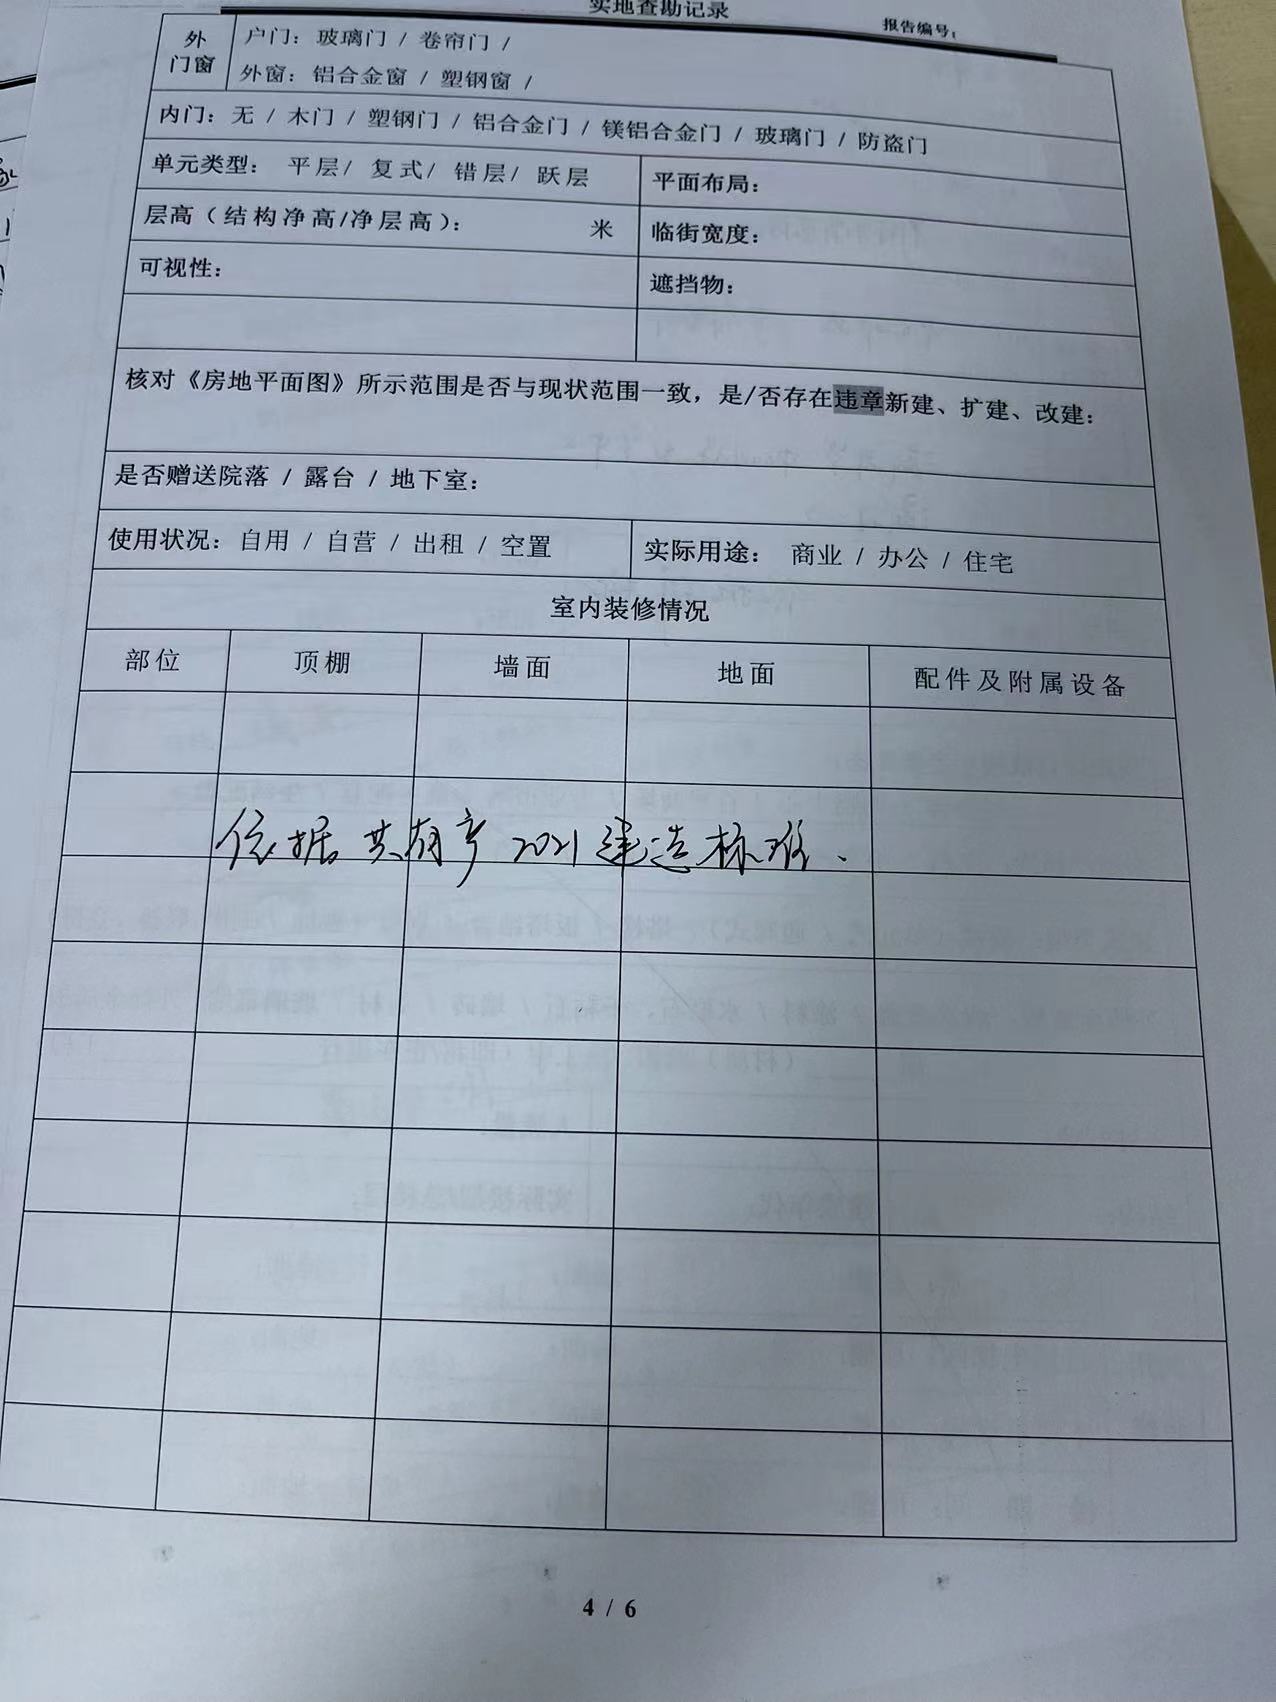 实地查勘记录
报告编号：
外门窗
户门：玻璃门 / 卷帘门 /
外窗：铝合金窗 / 塑钢窗 /
内门：无 / 木门 / 塑钢门 / 铝合金门 / 镁铝合金门 / 玻璃门 / 防盗门
单元类型： 平层/ 复式/ 错层/ 跃层
平面布局：
层高（结构净高/净层高）： 米
临街宽度：
可视性：
遮挡物：
核对《房地平面图》所示范围是否与现状范围一致，是/否存在违章新建、扩建、改建：
是否赠送院落 / 露台 / 地下室：
使用状况：自用 / 自营 / 出租 / 空置
实际用途： 商业 / 办公 / 住宅
室内装修情况
部位 顶棚 墙面 地面 配件及附属设备
依据共有产2021建造标准.
4 / 6